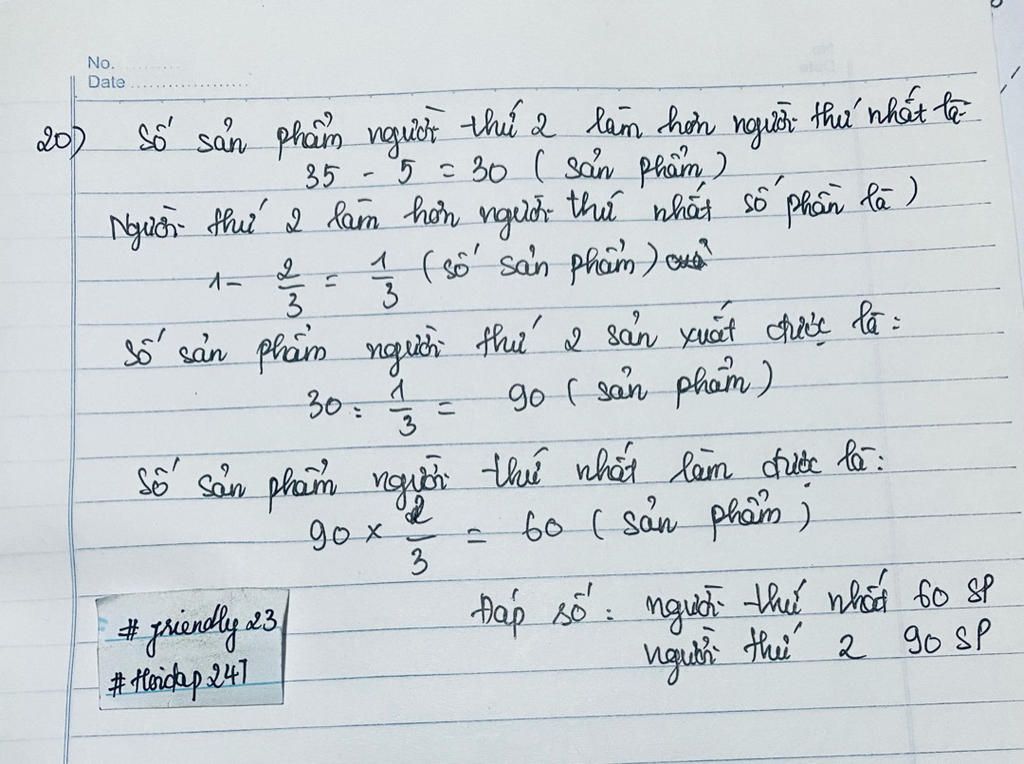 No.
Date
20) Số sản phẩm người thứ 2 làm hơn người thứ nhất là
35 - 5 = 30 ( sản phẩm )
Người thứ 2 làm hơn người thứ nhất số phần là )
1 - 2/3 = 1/3 ( số sản phẩm )
Số sản phẩm người thứ 2 sản xuất được là :
30 : 1/3 = 90 ( sản phẩm )
Số sản phẩm người thứ nhất làm được là :
90 × 2/3 = 60 ( sản phẩm )
Đáp số : người thứ nhất 60 SP
người thứ 2 90 SP
# friendly 23
# Hoidap 247